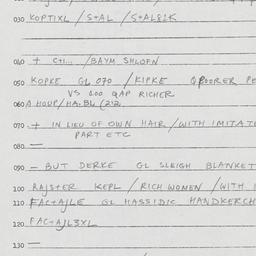 030 KOPTIXL / S+AL / S+AL81K
040 + C+1... /BAYM SHLOFN
050 KOPKE GL 070 / KIPKE POORER PE
VS 200 GAP RICHER
060 A HOUP/HA.BL (212.
070 + IN LIEU OF OWN HAIR / WITH IMITATE
PART ETC
080 —
090 — BUT DERKE GL SLEIGH BLANKET
100 RAJSTER KEPL / RICH WOMEN / WITH
110 FAC+AJLE GL HASSIDIC HANDKERCH
120 FAC+AJL3XL
130 —